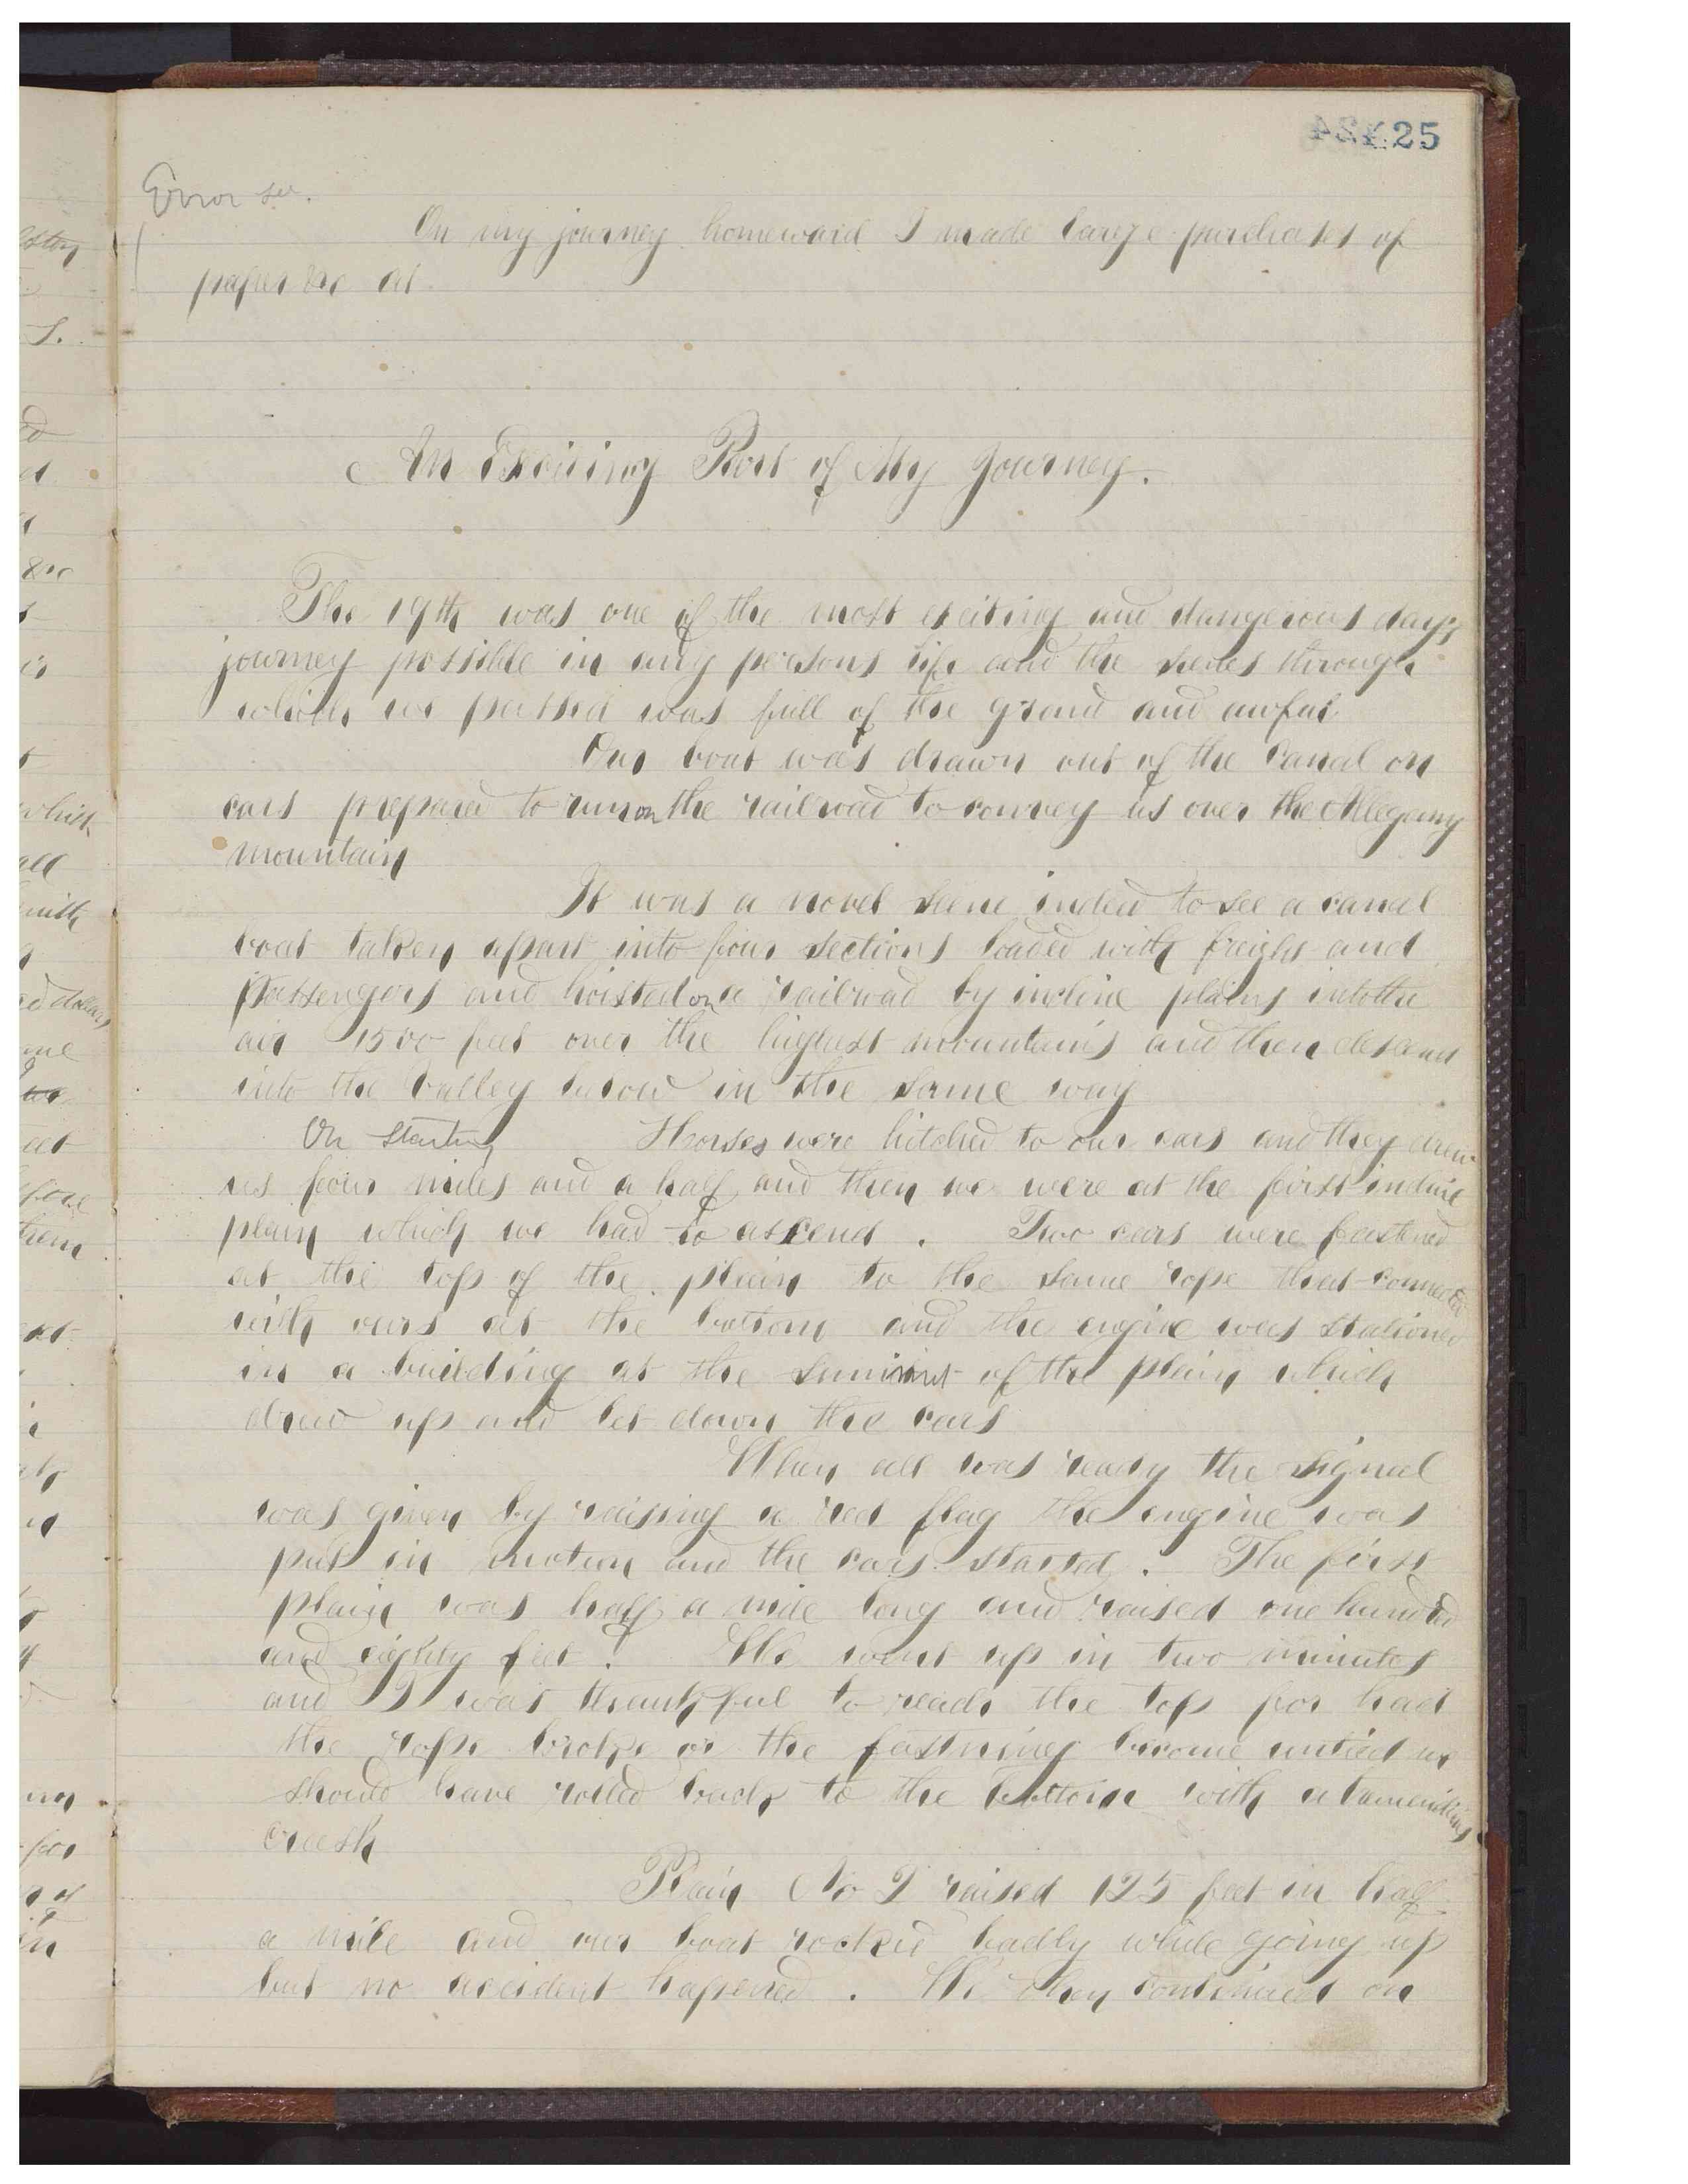 425
Error see.
On my journey homeward I made large purchases of
paper &c at
An Exciting Part of My Journey.
The 19th was one of the most exciting and dangerous days
journey possible in any persons life and the scenes through
which we passed was full of the grand and awful
Our boat was drawn out of the canal on
cars prepared to run on the railroad to convey us over the Allegany
mountain
It was a novel scene indeed to see a canal
boat taken apart into four sections loaded with freight and
passengers and hoisted on a railroad by incline plains into the
air 1500 feet over the highest mountains and then descend
into the valley below in the same way
On starting Horses were hitched to our cars and they drew
us four miles and a half and then we were at the first incline
plain which we had to ascend. Two cars were fastened
at the top of the plain to the same rope that connected
with ours at the bottom and the engine was stationed
in a building at the summit of the plain which
drew up and let down the cars
When all was ready the signal
was given by raising a red flag the engine was
put in motion and the cars started. The first
plain was half a mile long and raised one hundred
and eighty feet. We went up in two minutes
and I was thankful to reach the top for had
the rope broke or the fastning become untied we
should have rolled back to the bottom with a tremendious
crash
Plain No 2 raised 125 feet in half
a mile and our boat rocked badly while going up
but no accident hapened. We then continued on